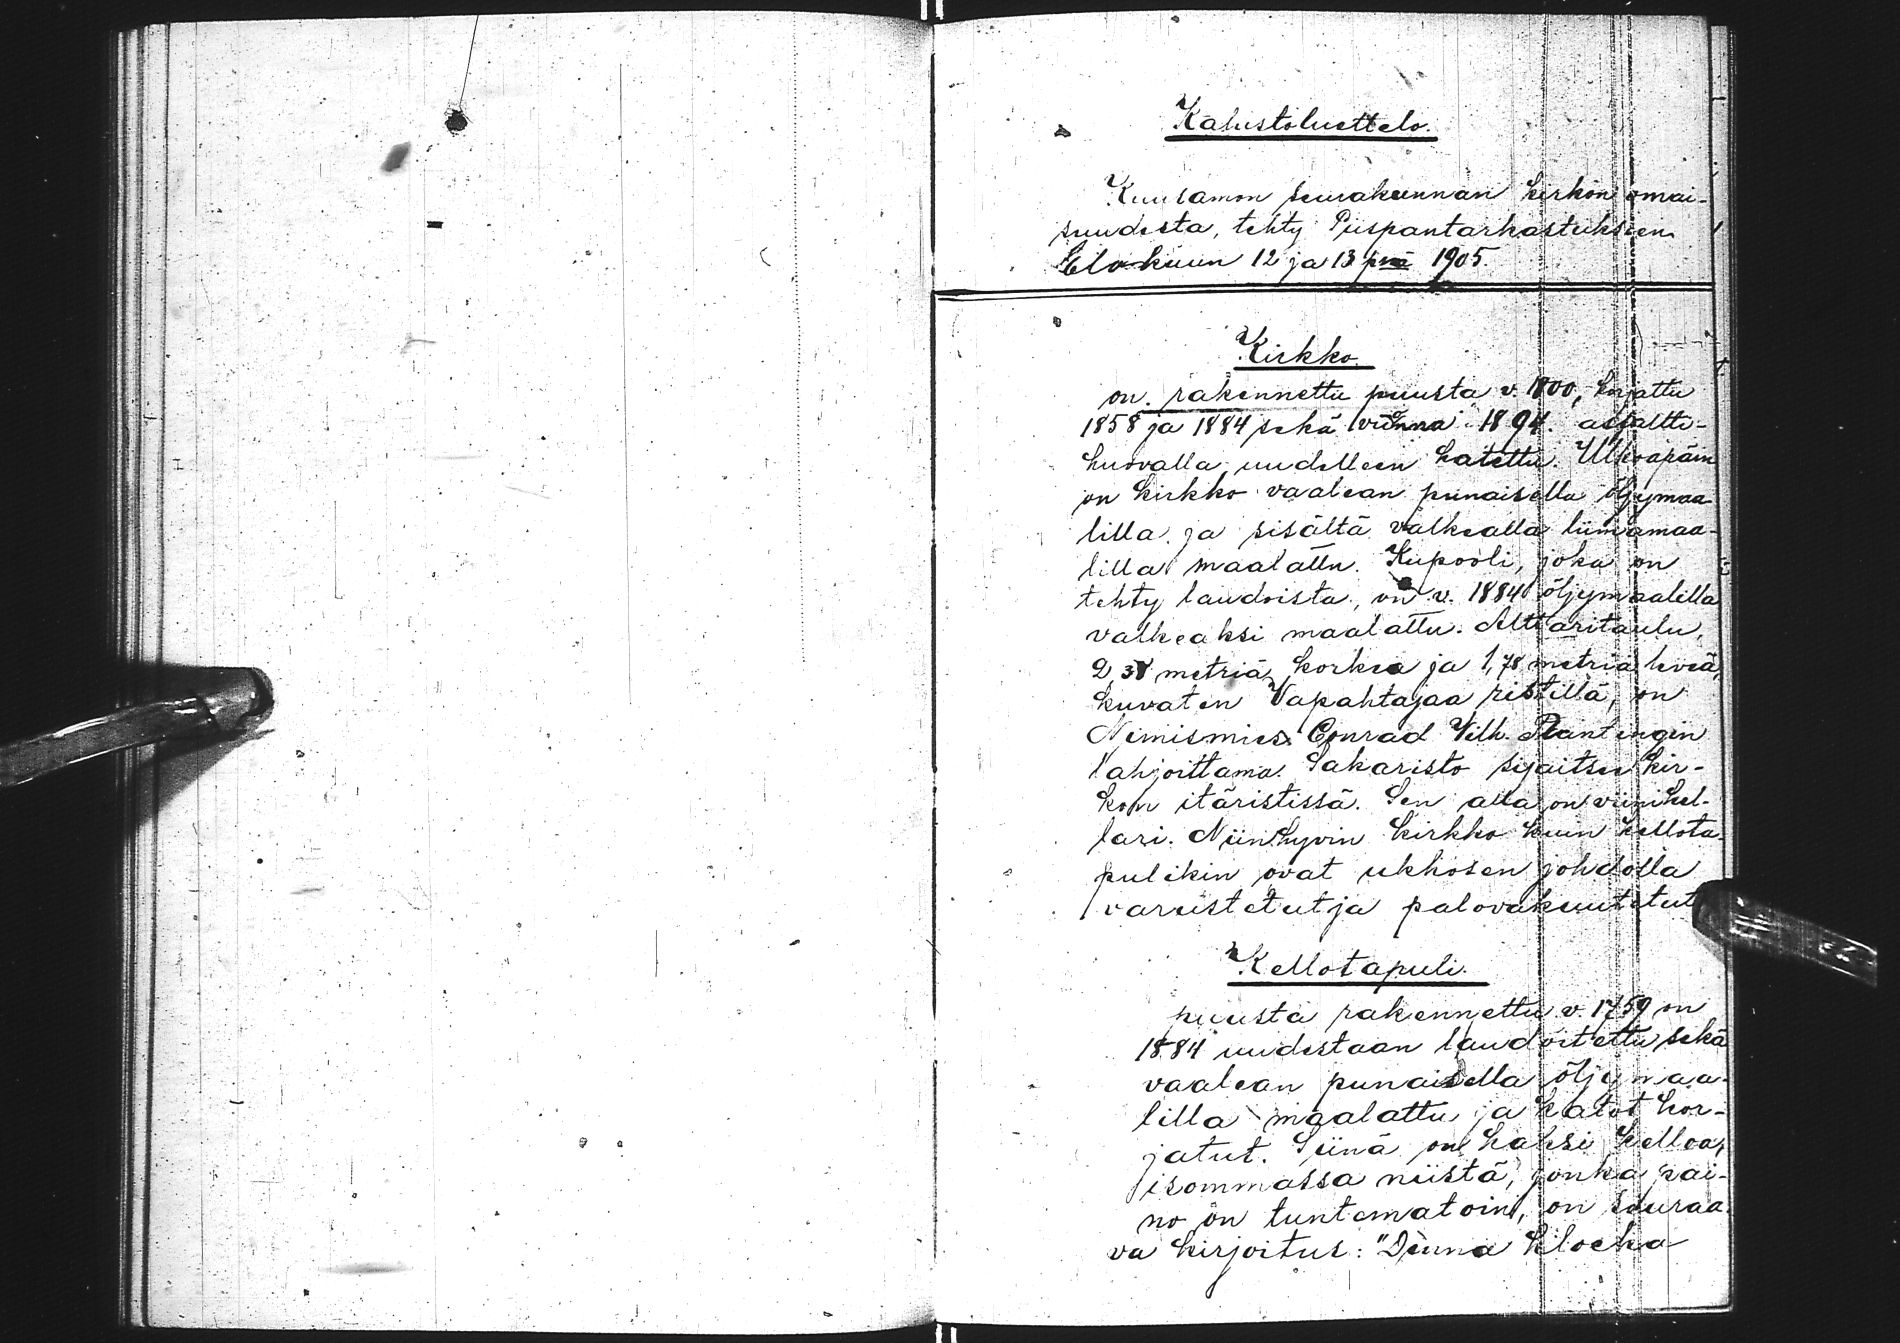 Kalustoluettelo.
Kuusamon seurakunnan kirkon omai-
suudesta, tehty Piispantarkastukseen
Elokuun 12 ja 13 pnä 1905.
Kirkko.
on rakennettu puusta v. 1800, korjattu
1858 ja 1884 sekä vuonna 1894 asfaltti-
huovalla uudelleen katettu. Ulkoapäin
on kirkko vaalean punaisella öljymaa-
lilla ja sisältä valkealla liimamaa-
lilla maalattu. Kupooli, joka on
tehty laudoista, on v. 1884 öljymaalilla
valkeaksi maalattu. Alttaritaulu,
2,38 metriä korkea ja 1,78 metriä leveä,
kuvaten Vapahtajaa ristillä, on
Nimismies Conrad Vilh. Plantingin
lahjoittama. Sakaristo sijaitsee kir-
kon itäristissä. Sen alla on viinikel-
lari. Niinhyvin kirkko kuin kellota
pulikin ovat ukkosen johdolla
varustetut ja palovakuutetut
Kellotapuli.
puusta rakennettu v. 1759 on
1884 uudestaan laudoitettu sekä
vaalean punaisella öljymaa-
lilla maalattu ja katot kor-
jatut. Siinä on kaksi kelloa,
isommassa niistä, jonka pai-
no on tuntematoin, on seuraa-
va kirjoitus: "Denna klocka